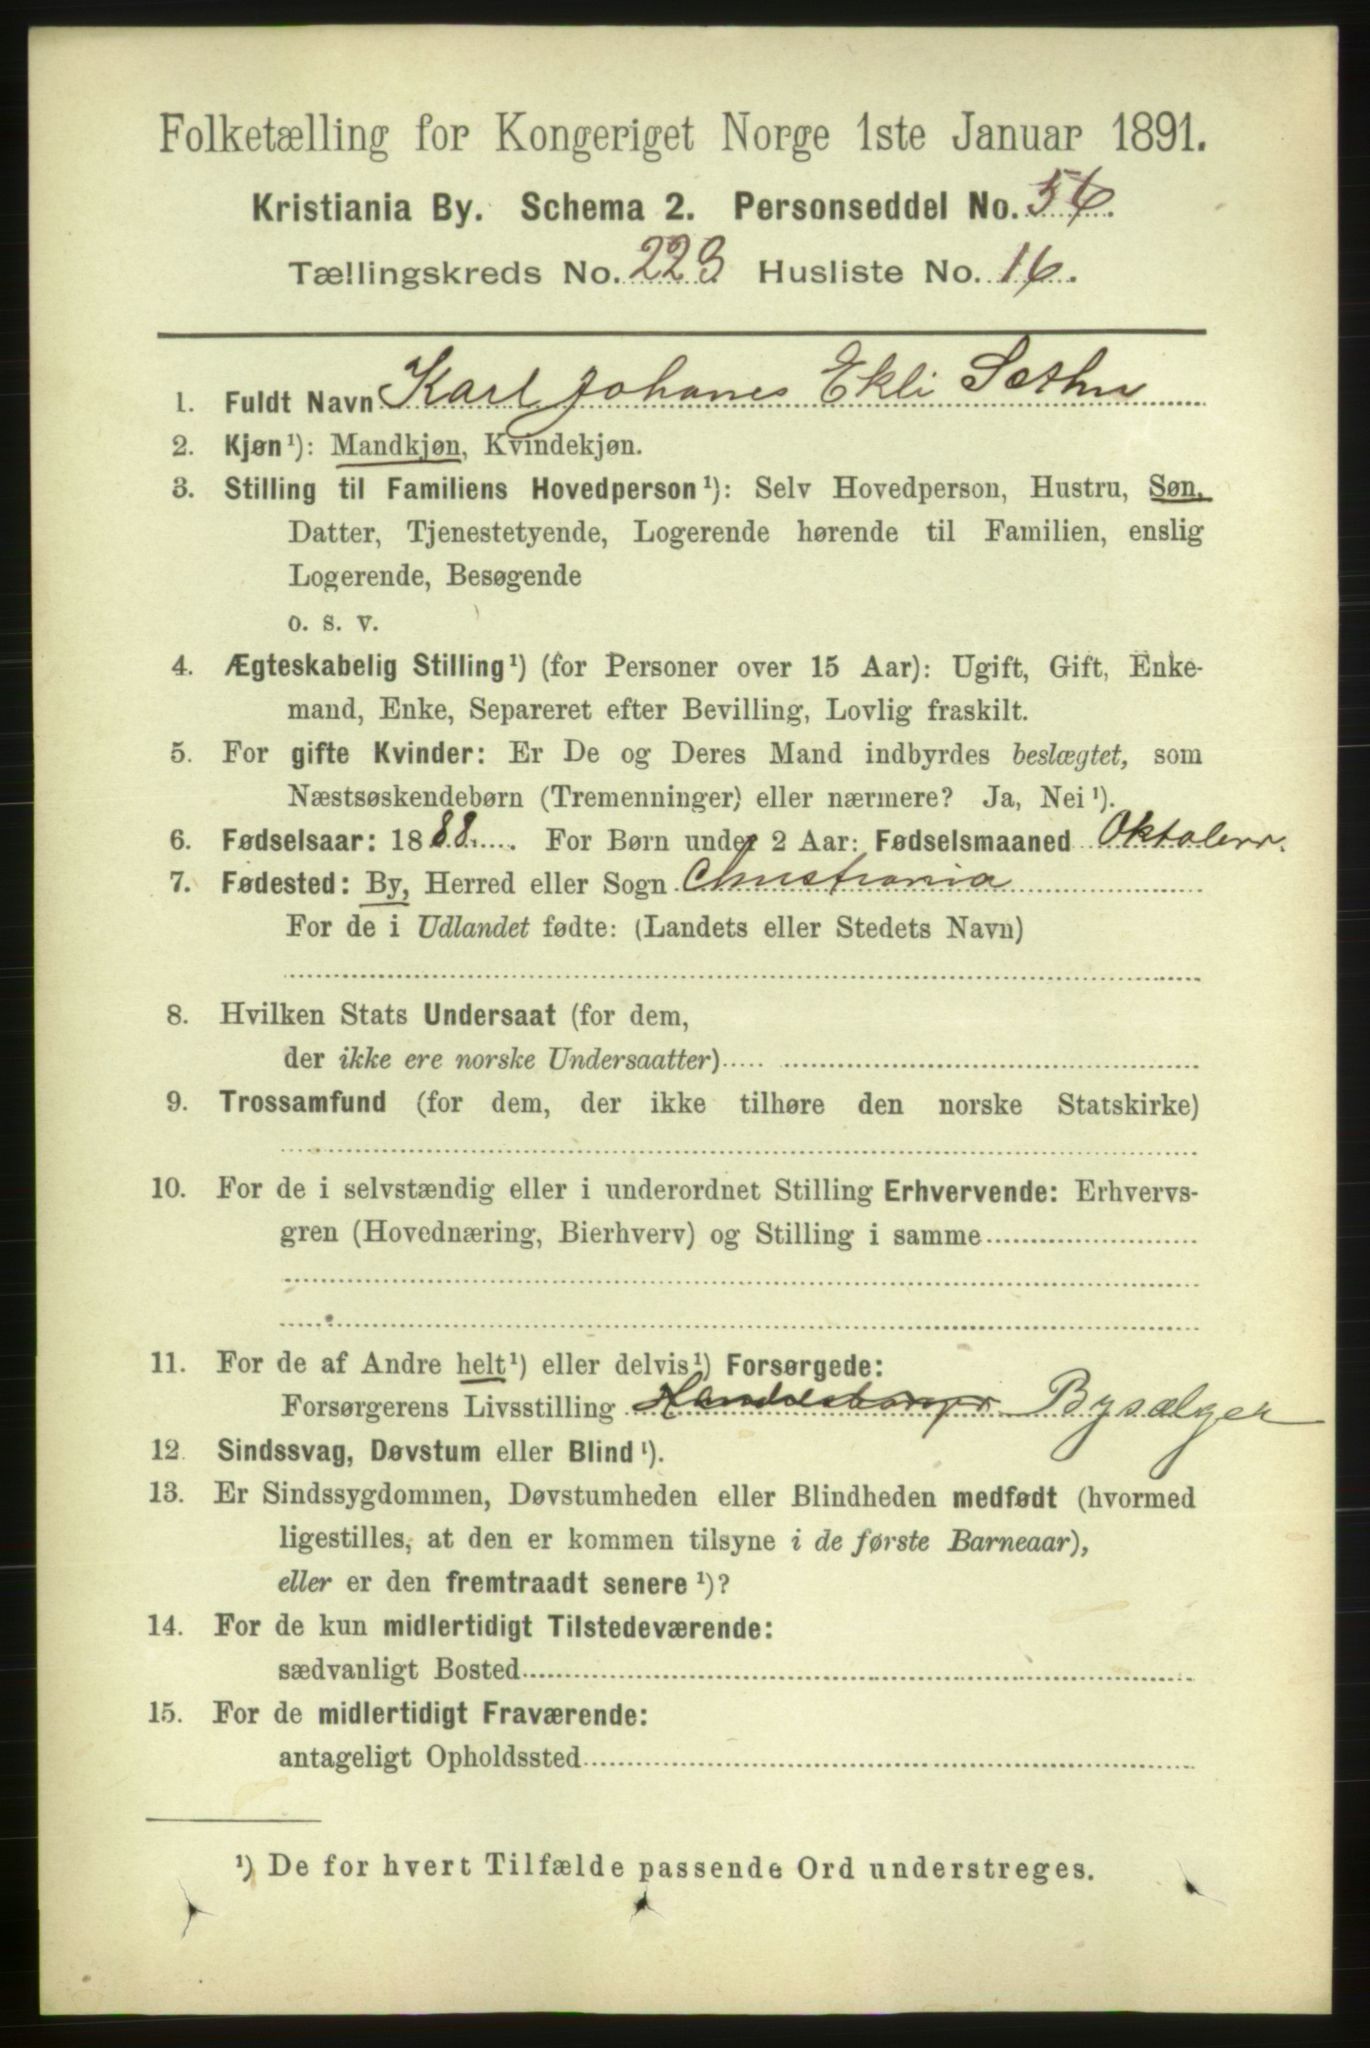 Folketælling for Kongeriget Norge 1ste Januar 1891.
Kristiania By. Schema 2. Personseddel No. 56.
Tællingskreds No. 223 Husliste No. 16.
1. Fuldt Navn Karl Johanes Ekli Sæthr
2. Kjøn¹): Mandkjøn, Kvindekjøn.
3. Stilling til Familiens Hovedperson¹): Selv Hovedperson, Hustru, Søn,
Datter, Tjenestetyende, Logerende hørende til Familien, enslig
Logerende, Besøgende
o. s. v.
4. Ægteskabelig Stilling¹) (for Personer over 15 Aar): Ugift, Gift, Enke-
mand, Enke, Separeret efter Bevilling, Lovlig fraskilt.
5. For gifte Kvinder: Er De og Deres Mand indbyrdes beslægtet, som
Næstsøskendebørn (Tremenninger) eller nærmere? Ja, Nei¹).
6. Fødselsaar: 1888. For Børn under 2 Aar: Fødselsmaaned Oktober.
7. Fødested: By, Herred eller Sogn Christiania
For de i Udlandet fødte: (Landets eller Stedets Navn)
8. Hvilken Stats Undersaat (for dem,
der ikke ere norske Undersaatter)
9. Trossamfund (for dem, der ikke tilhøre den norske Statskirke)
10. For de i selvstændig eller i underordnet Stilling Erhvervende: Erhvervs-
gren (Hovednæring, Bierhverv) og Stilling i samme
11. For de af Andre helt¹) eller delvis¹) Forsørgede:
Forsørgerens Livsstilling Handelsborger Bysælger
12. Sindssvag, Døvstum eller Blind¹).
13. Er Sindssygdommen, Døvstumheden eller Blindheden medfødt (hvormed
ligestilles, at den er kommen tilsyne i de første Barneaar),
eller er den fremtraadt senere¹)?
14. For de kun midlertidigt Tilstedeværende:
sædvanligt Bosted
15. For de midlertidigt Fraværende:
antageligt Opholdssted
¹) De for hvert Tilfælde passende Ord understreges.